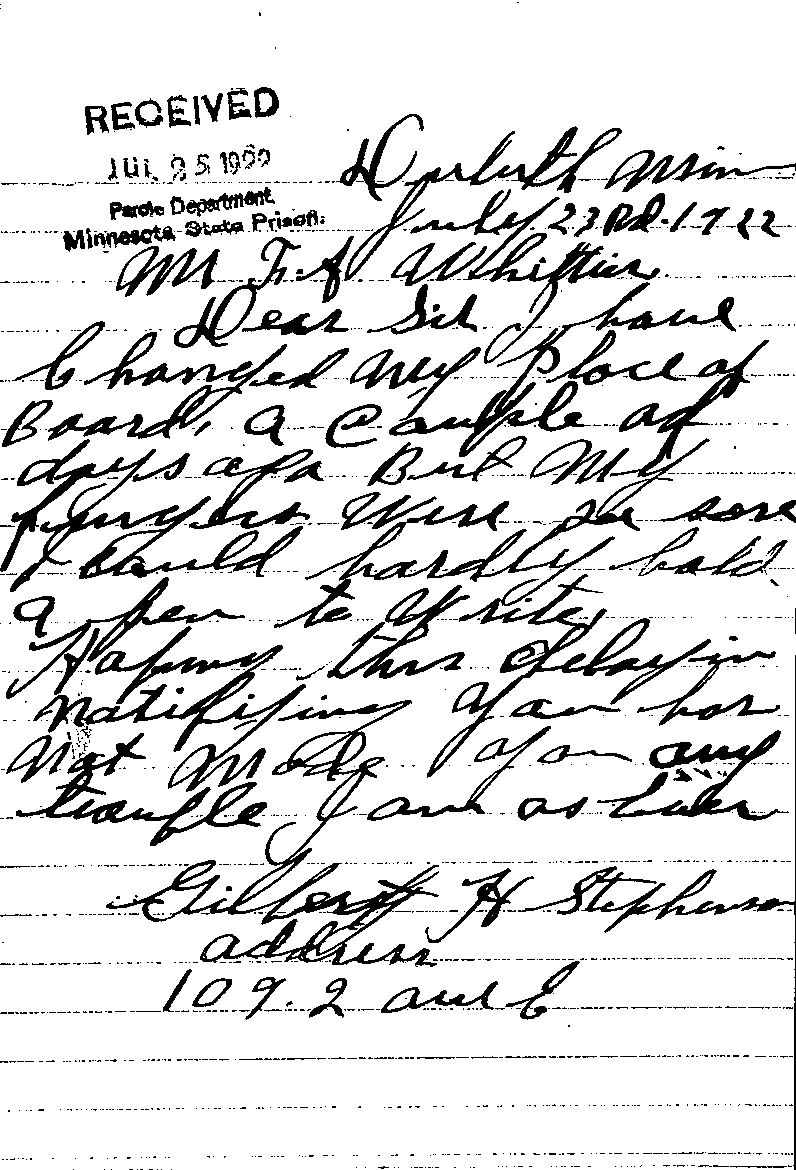 RECEIVED
JUL 25 1922
Parole Department
Minnesota State Prison.
Duluth Minn
July 23 Rd. 1922
Mr F. A. Whittier
Dear Sir I have
Changed My Place of
Board, a Couple of
days ago But My
fingers Were so sore
I could hardly hold
a pen to Write,
Hoping this delay in
notifiying you has
not Made you any
trouple I am as Ever
Gilbert H Stephenson
address
109. 2 ave E